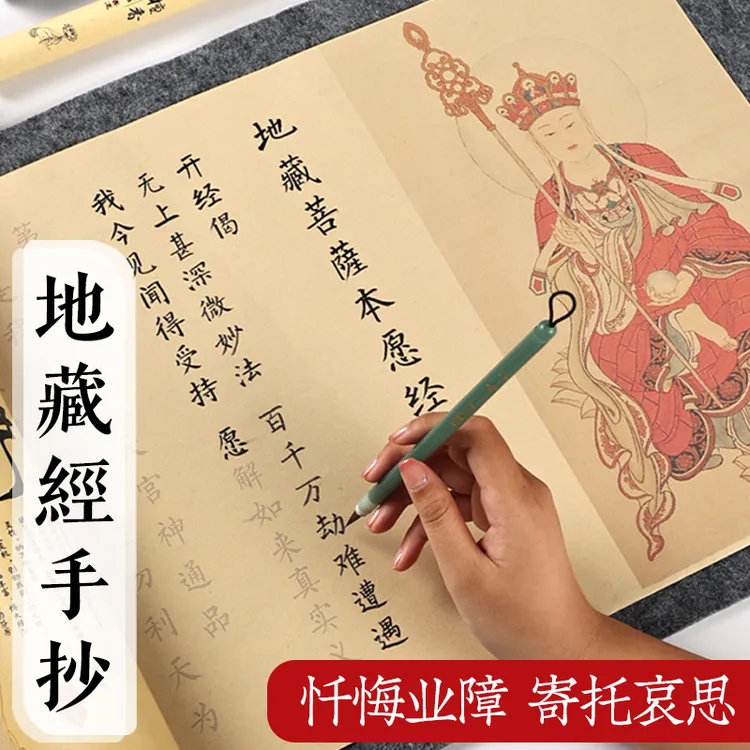 地藏菩薩本愿经
开经偈
无上甚深微妙法 百千万劫难遭遇
我今见闻得受持 愿解如来真实义
宫神通品
利天为
第
地藏經手抄
忏悔业障 寄托哀思